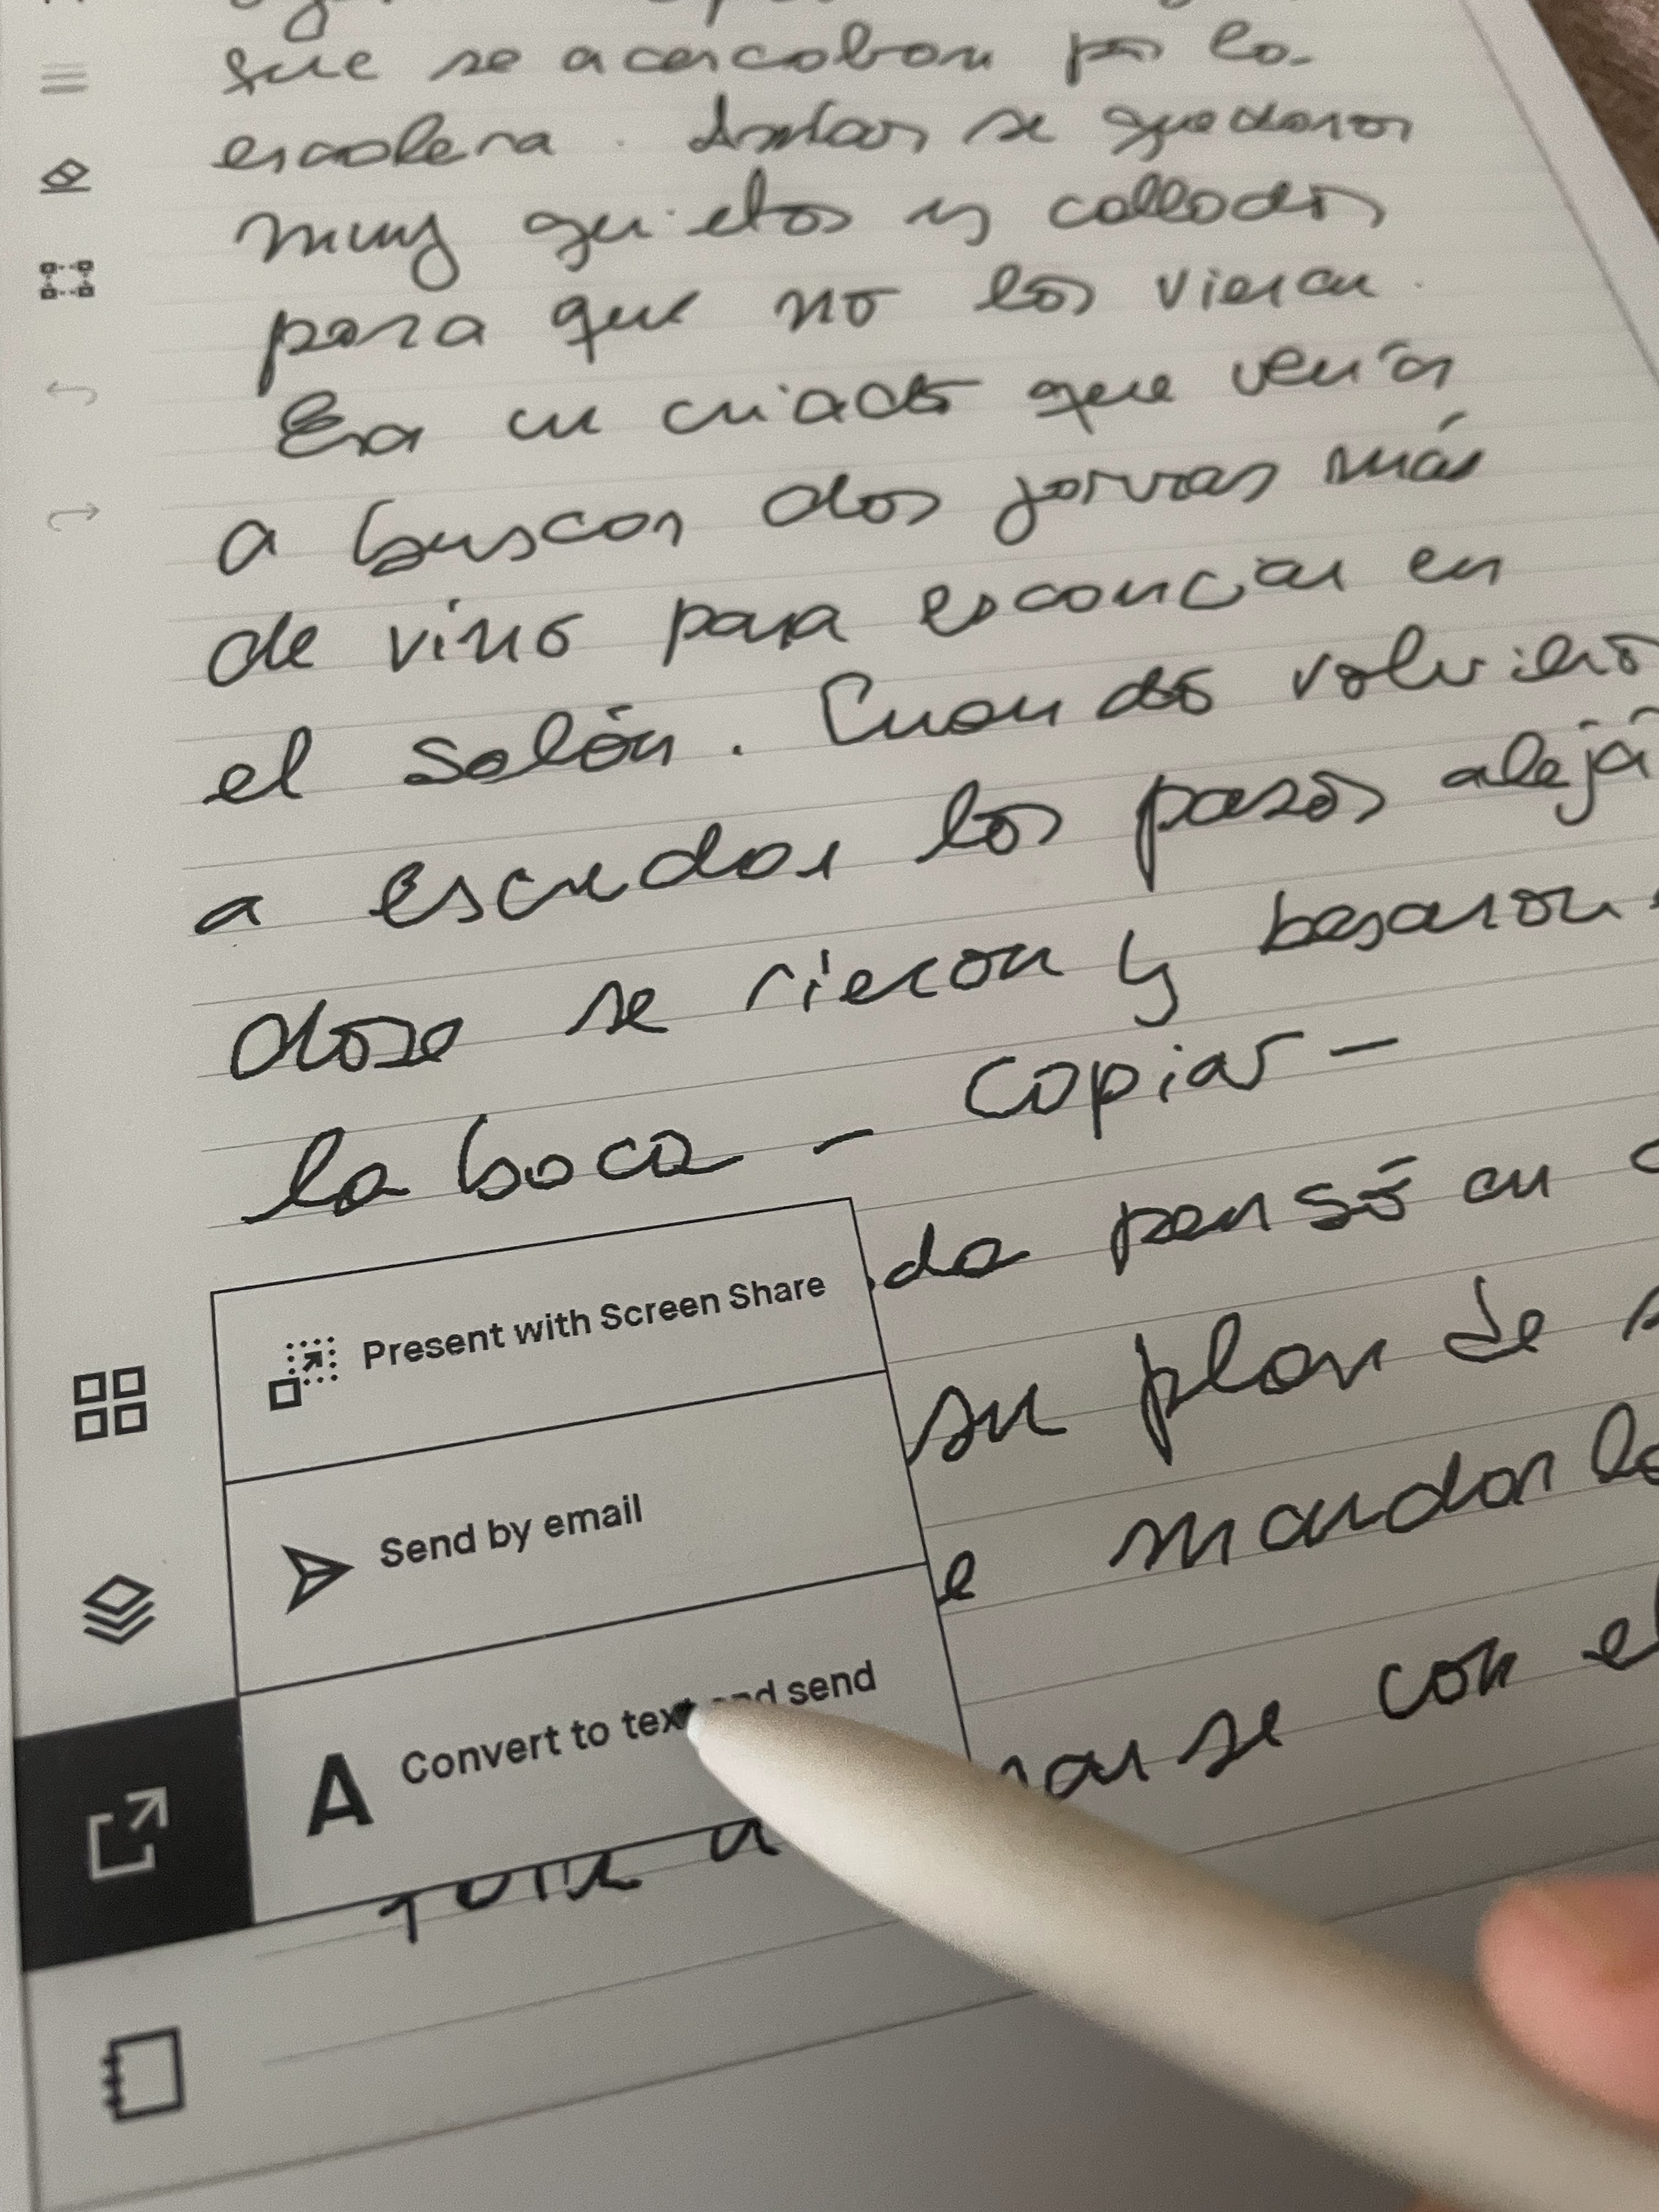 que se acercaban por la
escalera. Ambos se quedaron
muy quietos y callados
para que no los vieran.
Era un criado que venía
a buscar dos jarras más
de vino para escanciar en
el salón. Cuando volviero
a escuchar los pasos alejá
dose se rieron y besaron
la boca - Copiar -
da pensó en
su plan de
e mandar la
se con el
Present with Screen Share
Send by email
Convert to text and send